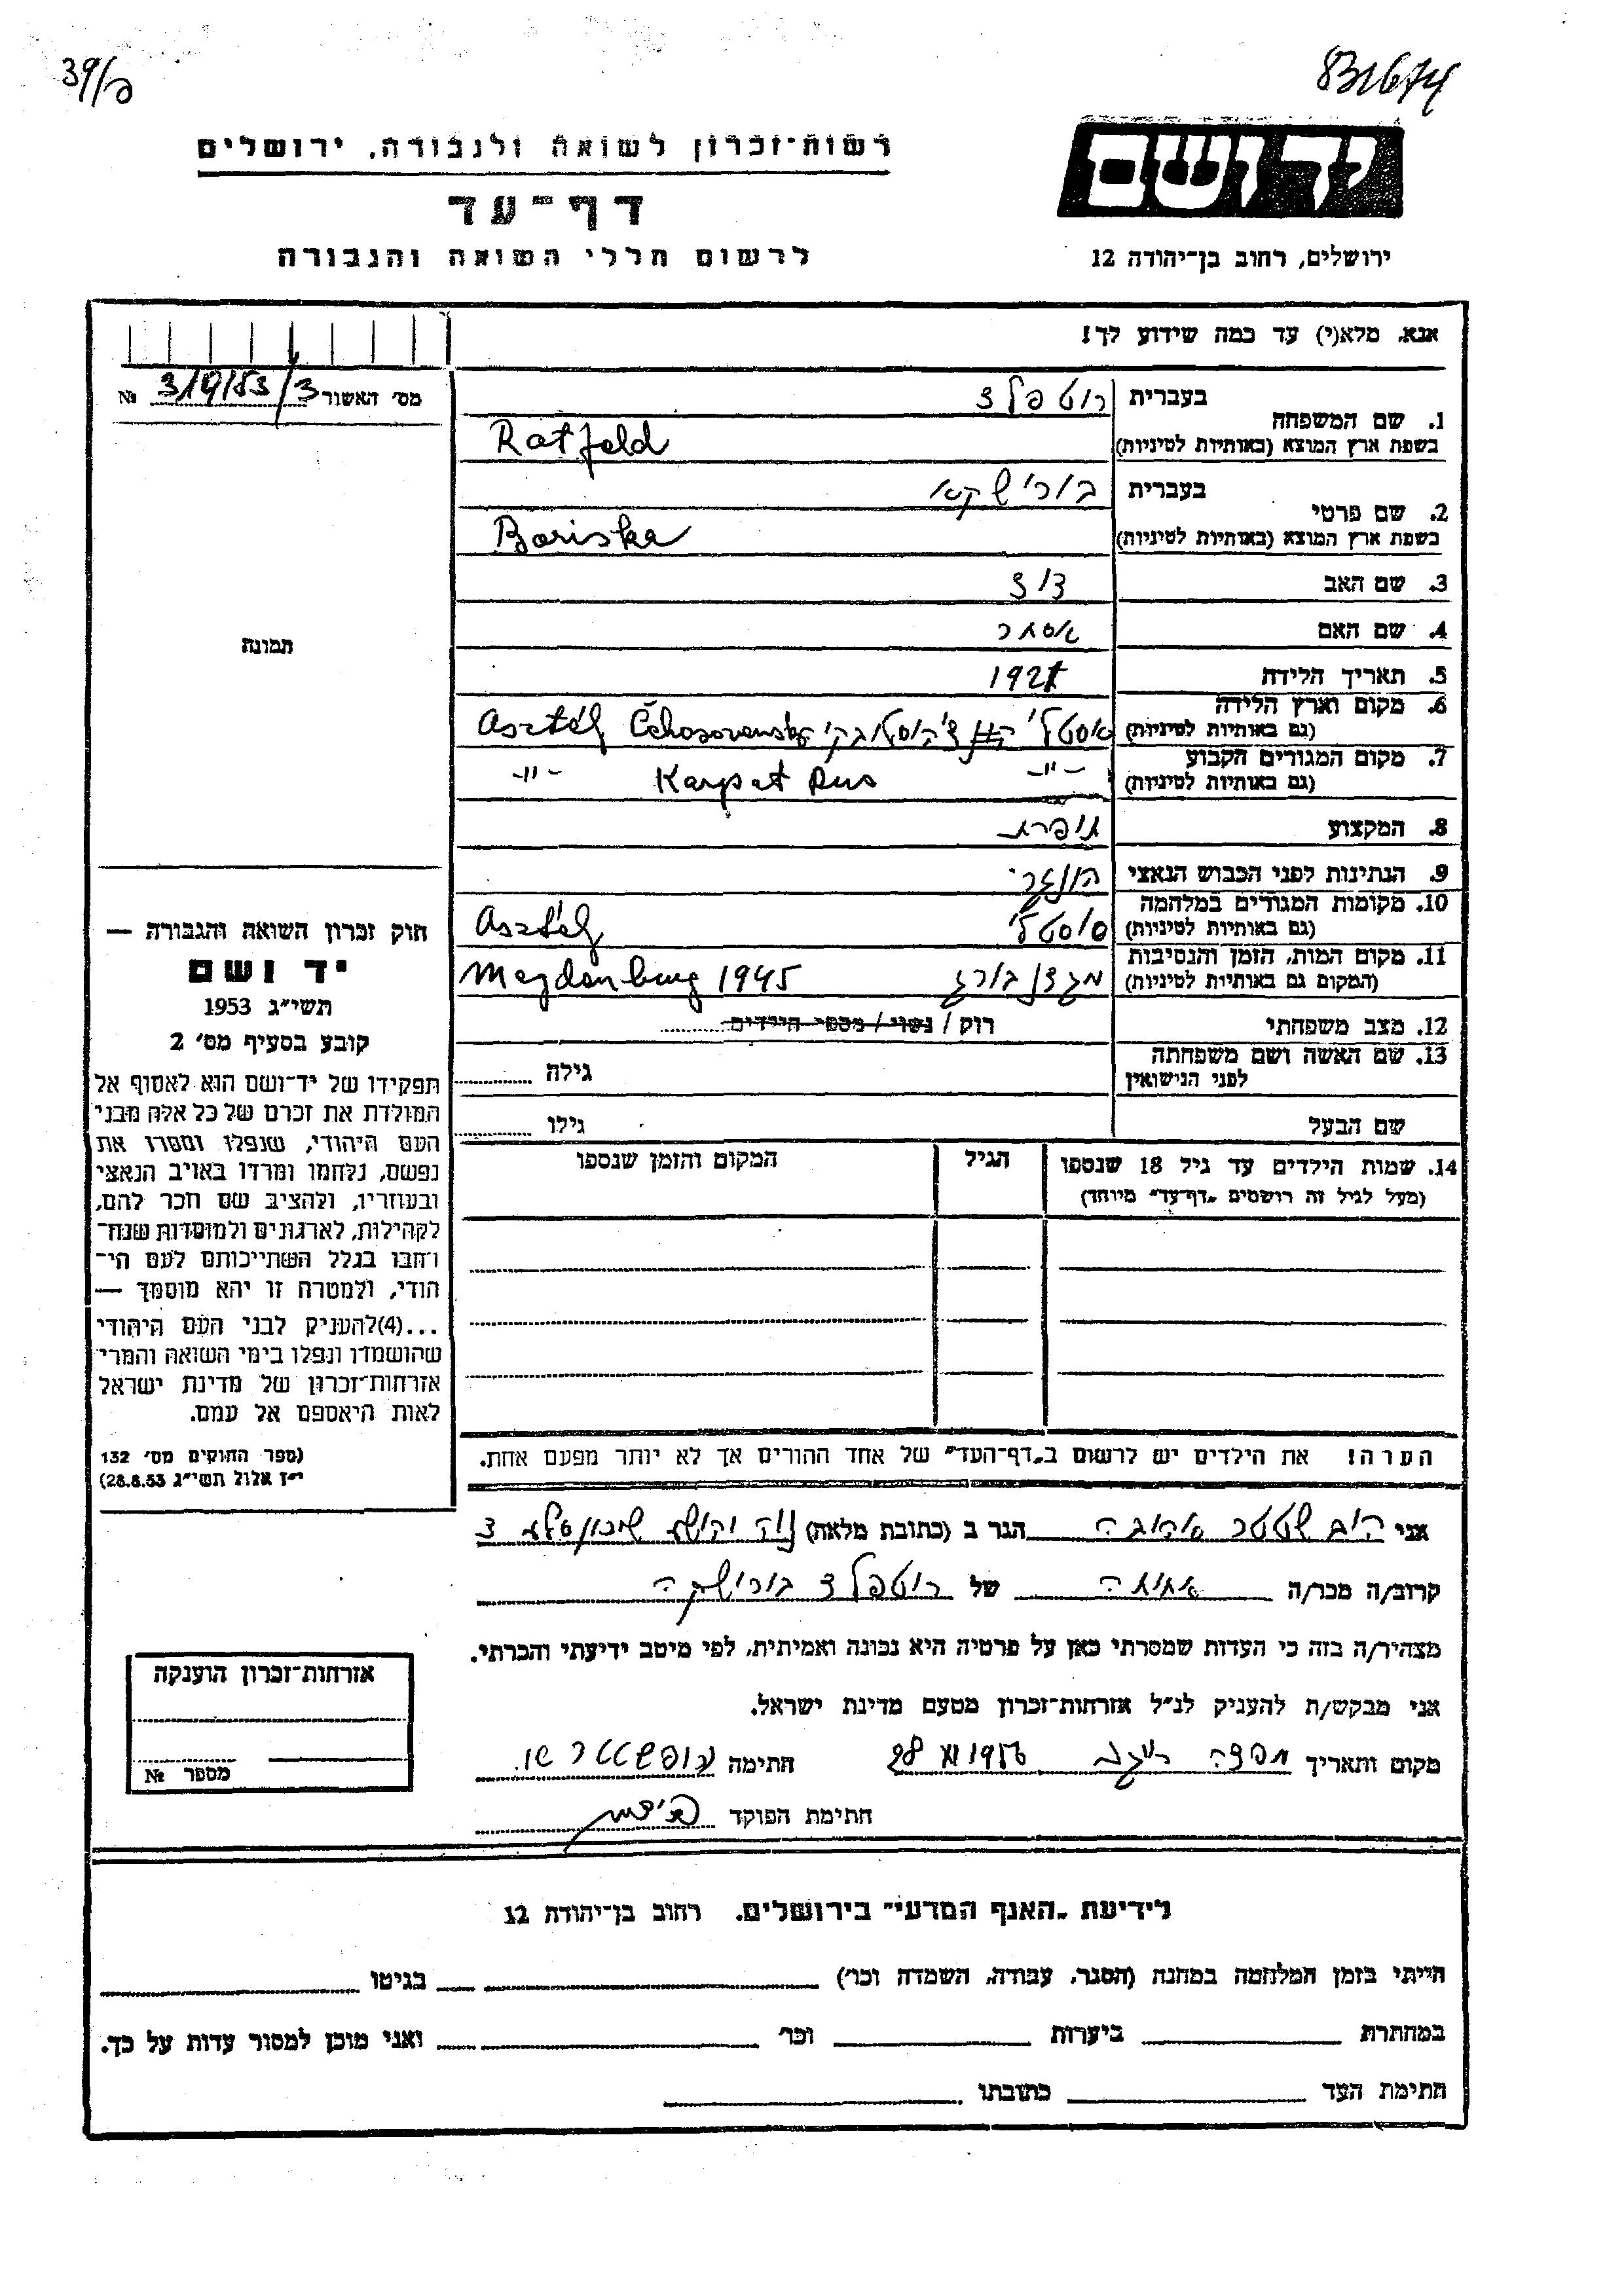 39/פ
831674
יד ושם
ירושלים, רחוב בן־יהודה 12
רשות־זכרון לשואה ולגבורה, ירושלים
דף־עד
לרשום חללי השואה והגבורה
אנא, מלא(י) עד כמה שידוע לך!
מס׳ האשור 3/19/53/3 №
1. שם המשפחה
בעברית רוטפלד
בשפת ארץ המוצא (באותיות לטיניות) Ratfeld
2. שם פרטי
בעברית בורישקא
בשפת ארץ המוצא (באותיות לטיניות) Boriska
3. שם האב דוד
4. שם האם אסתר
5. תאריך הלידה
6. מקום וארץ הלידה
(גם באותיות לטיניות) Asztély
7. מקום המגורים הקבוע
(גם באותיות לטיניות) -"- Karpat Rus -"-
8. המקצוע תופרת
9. הנתינות לפני הכבוש הנאצי הונגרי
10. מקומות המגורים במלחמה
(גם באותיות לטיניות) Asztély
11. מקום המות, הזמן והנסיבות
(המקום גם באותיות לטיניות) מגדנבורג Magdenburg 1945
12. מצב משפחתי רוק / נשוי / מספר הילדים
13. שם האשה ושם משפחתה
לפני הנישואין
גילה
שם הבעל
גילו
14. שמות הילדים עד גיל 18 שנספו
(מעל לגיל זה רושמים „דף־עד״ מיוחד)
הגיל
המקום והזמן שנספו
הערה! את הילדים יש לרשום ב„דף־העד״ של אחד ההורים אך לא יותר מפעם אחת.
תמונה
חוק זכרון השואה והגבורה —
יד ושם
תשי״ג 1953
קובע בסעיף מס׳ 2
תפקידו של יד־ושם הוא לאסוף אל
המולדת את זכרם של כל אלה מבני
העם היהודי, שנפלו ומסרו את
נפשם, נלחמו ומרדו באויב הנאצי
ובעוזריו, ולהציב שם וזכר להם,
לקהילות, לארגונים ולמוסדות שנח־
רחבו בגלל השתייכותם לעם הי־
הודי, ולמטרה זו יהא מוסמך —
...(4)להעניק לבני העם היהודי
שהושמדו ונפלו בימי השואה והמרי
אזרחות־זכרון של מדינת ישראל
לאות היאספם אל עמם.
(ספר החוקים מס׳ 132
י״ז אלול תשי״ג 28.8.53)
אני אהובה הגר ב (כתובת מלאה) נוה יהושע שיכון סלע
קרוב/ה מכר/ה אחותה של רוטפלד בורישקה
מצהיר/ה בזה כי העדות שמסרתי כאן על פרטיה היא נכונה ואמיתית, לפי מיטב ידיעתי והכרתי.
אני מבקש/ת להעניק לנ״ל אזרחות־זכרון מטעם מדינת ישראל.
מקום ותאריך
חתימה
חתימת הפוקד
אזרחות־זכרון הוענקה
מספר №
לידיעת „האגף המדעי״ בירושלים, רחוב בן־יהודה 12
הייתי בזמן המלחמה במחנה (הסגר, עבודה, השמדה וכו׳) בגיטו
במחתרת ביערות וכו׳ ואני מוכן למסור עדות על כך.
חתימת העד כתובתו